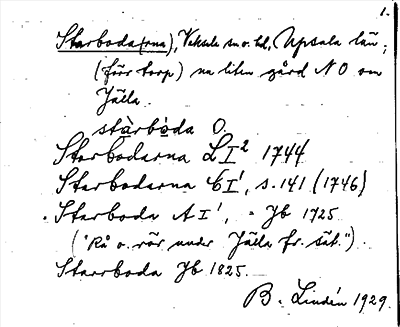 1.
Starboda(rna), Vaksala sn o. hd, Upsala län;
(förr torp) nu liten gård N O om
Jälla.
stàrbòda O.
Starbodarna LI² 1744
Starbodarna CI¹, s. 141 (1746)
Starboda AI¹, = Jb 1725
("Rå o. rör under Jälla fr. sät.").
Starrboda Jb 1825.
B. Lindén 1929.